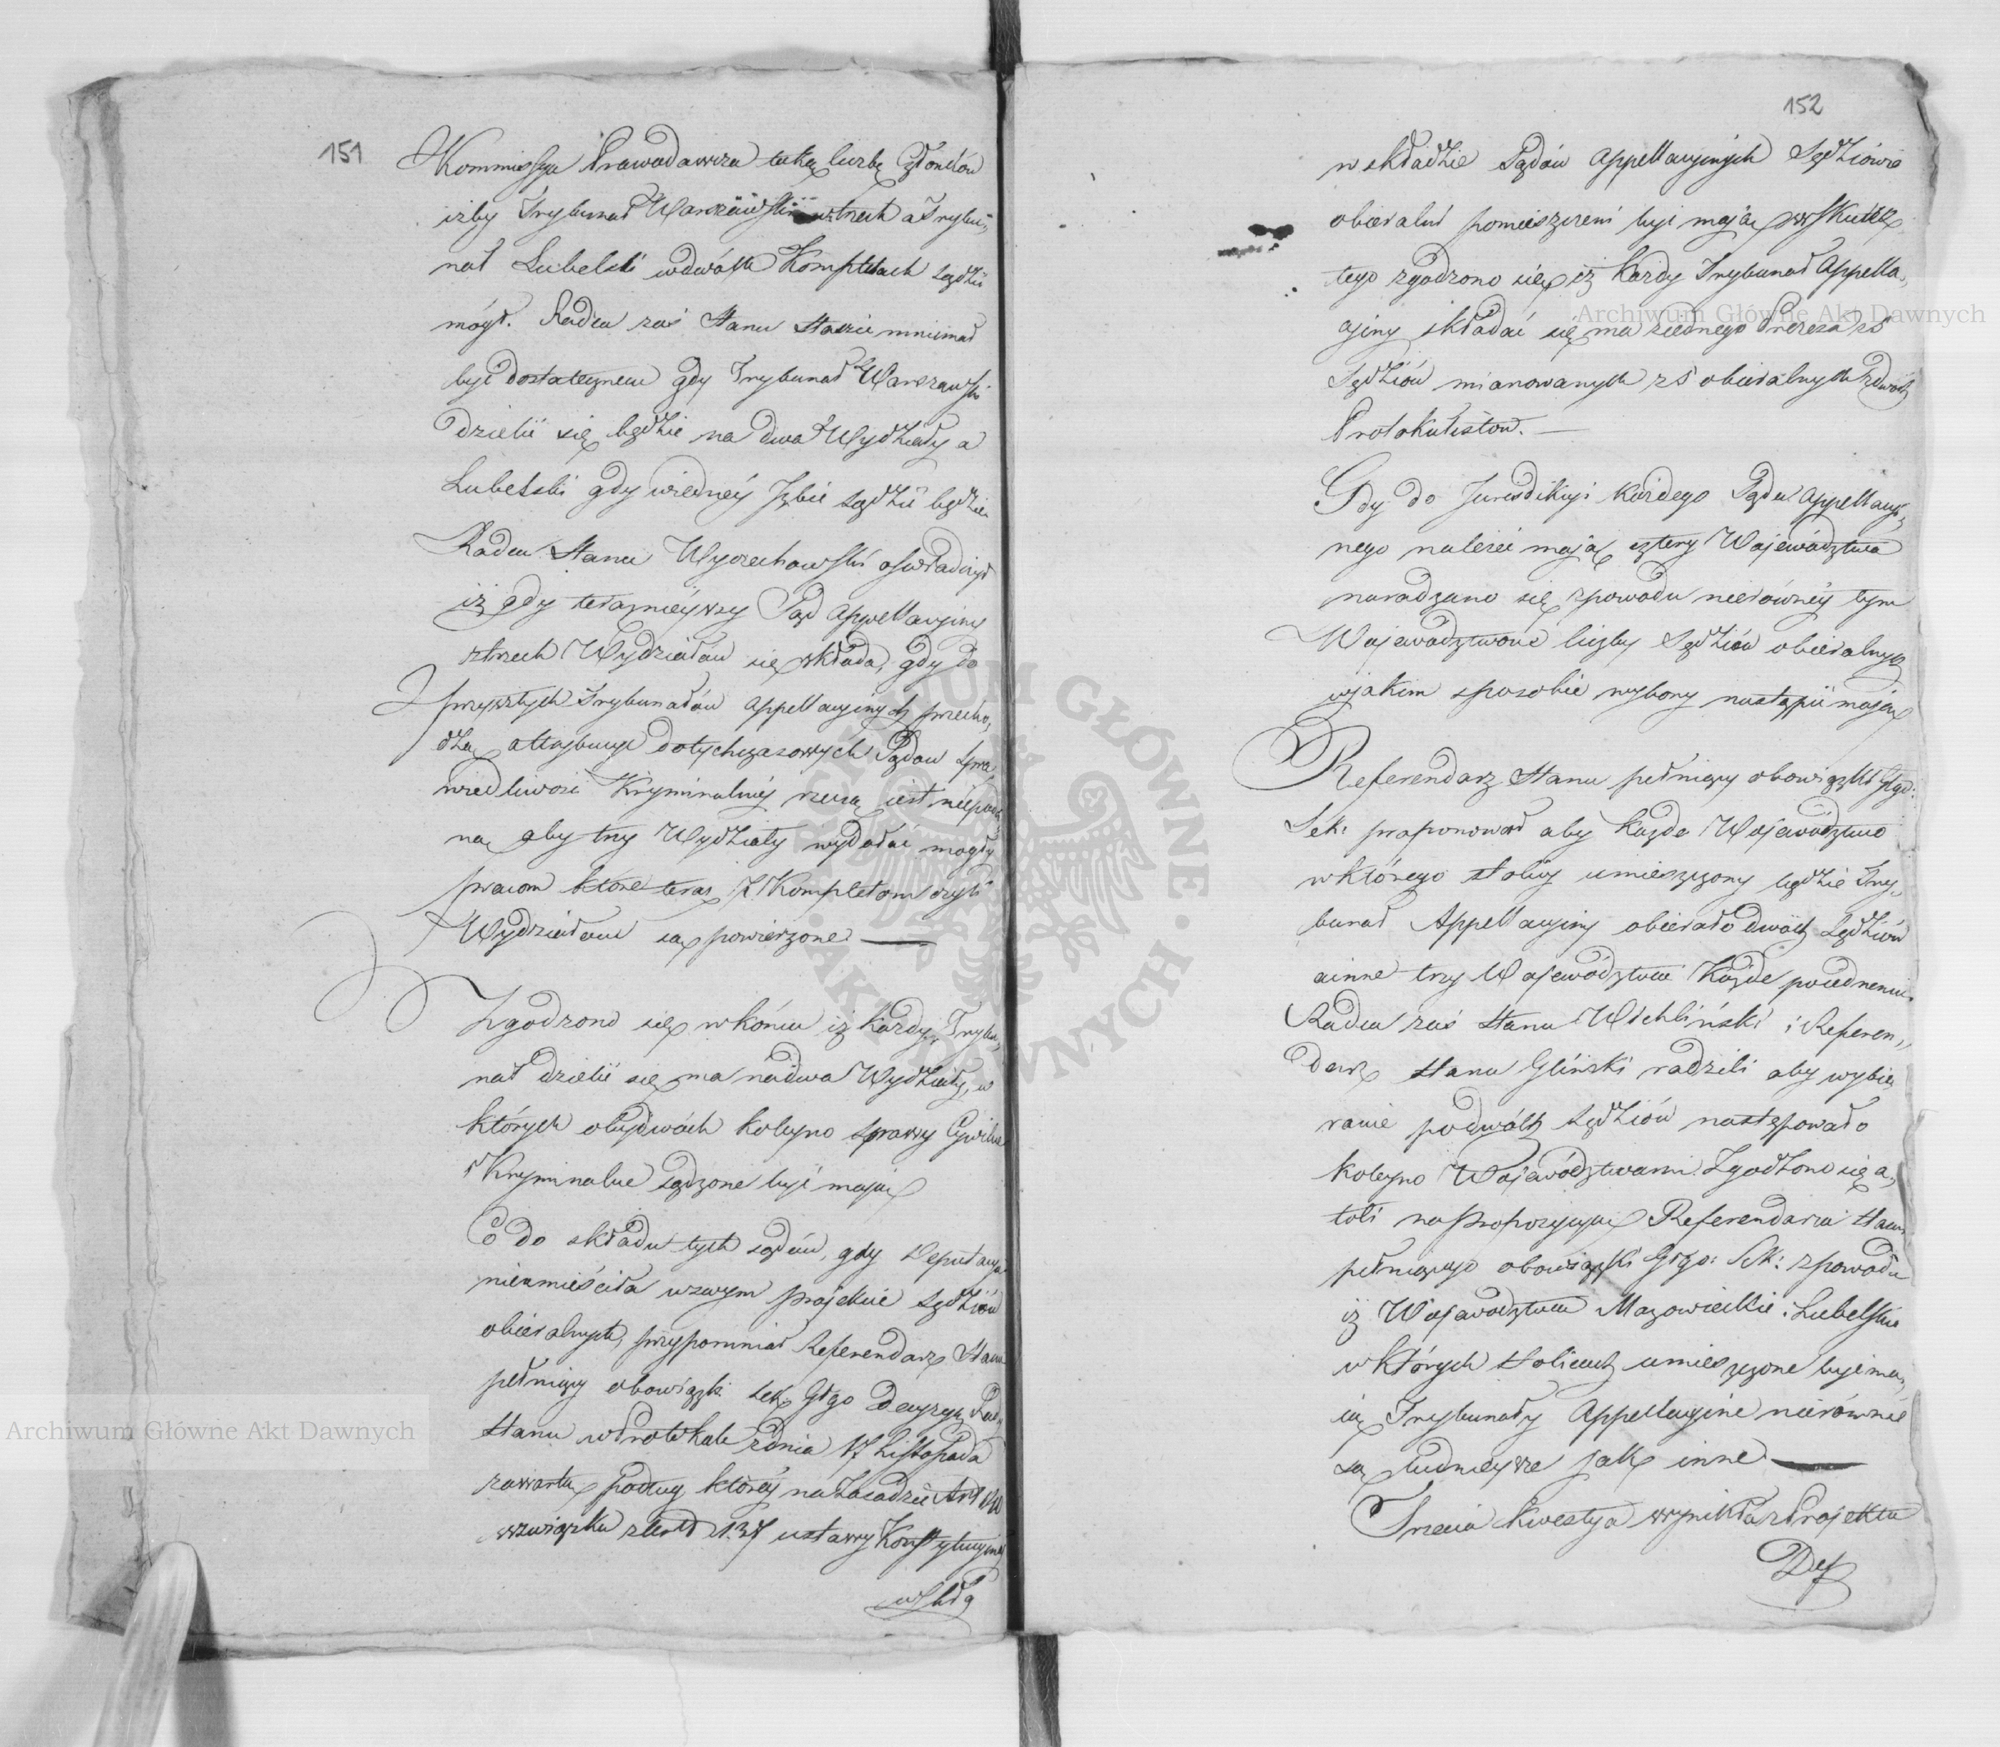 151
Kommissya Prawodawcza taką liczbę Członków
iżby Trybunał Warszawski w trzech a Trybu„
nał Lubelski w dwóch Kompletach sądzić
mógł. Radca zaś Stanu Staszic mniemał
być dostatecznem gdy Trybunał Warszawski
dzielić się będzie na dwa Wydziały a
Lubelski gdy w iedney Izbie sądzić będzie
Radca Stanu Wyczechowski oświadczył
iż gdy teraznieyszy Sąd Appellacyiny
z trzech Wydziałów się składa, gdy do
przyszłych Trybunałów Appellacyinych przecho„
dzą attrybucye dotychczasowych Sądów Spra„
wiedliwości Kryminalney rzeczą iest niepodo„
na, aby trzy Wydziały wydołać mogły
pracom które teraz 7 Kompletom czyli
Wydziałom są powierzone —
Zgodzono się w końcu iż każdy Trybu„
nał dzielić się ma na dwa Wydziały, w
których obydwóch koleyno sprawy Cywilne
i Kryminalne sądzone być maią
Co do składu tych sądów, gdy Deputacya
nieumieściła w swym proiekcie Sędziów
obieralnych, przypomniał Referendarz Stanu
pełniący obowiązki Sek. Głgo Decyzyą Rady
Stanu w Protokule z dnia 17 Listopada
zawartą podług którey na zasadzie Art
w związku z Art 137 ustawy Konstytucyiney
w Skła
152
w składzie Sądów Appellacyinych Sędziowie
obieralni pomieszczeni być maią w skutek
tego zgodzono się, iż każdy Trybunał Appella„
cyiny składać się ma z iednego Prezesa z 5
Sędziów mianowanych z 5 obieralnych z dwóch
Protokulistow. —
Gdy do Jurisdikcyi każdego Sądu Appellacyi„
nego należeć maią cztery Województwa
naradzano się z powodu nierówney tym
Województwom liczby Sędziów obieralnych
w jakim sposobie wybory nastąpić maią
Referendarz Stanu pełniący obowiązki Głgo:
Sek: proponował aby każde Województwo
w którego stolicy umieszczony będzie Try„
bunał Appellacyiny obierało dwóch Sędziów
a inne trzy Województwa każde po iednemu
Radca zaś Stanu Wichliński i Referen„
darz Stanu Gliński radzili aby wybie„
ranie po dwóch Sędziów następowało
koleyno Województwami. Zgodzono się a„
toli na propozycyą Referendarza Stanu
pełniącego obowiązki Głgo: Sek: z powodu
iż Województwa Mazowieckie i Lubelskie
w których stolicach umieszczone być ma„
ią Trybunały Appellacyine nierównie
są ludnieysze jak inne —
Trzecia kwestya wynikła z Projektu
Dep
Archiwum Główne Akt Dawnych
Archiwum Główne Akt Dawnych
ARCHIWUM GŁÓWNE · AKT DAWNYCH ·